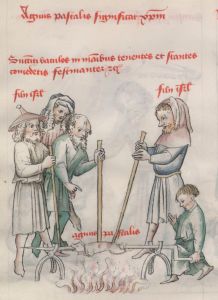 Agnus pascalis significat xpm
baculos in manibus tenentes et stantes
comedetis festinanter
filii isrl
filii isrl
agnus paschalis